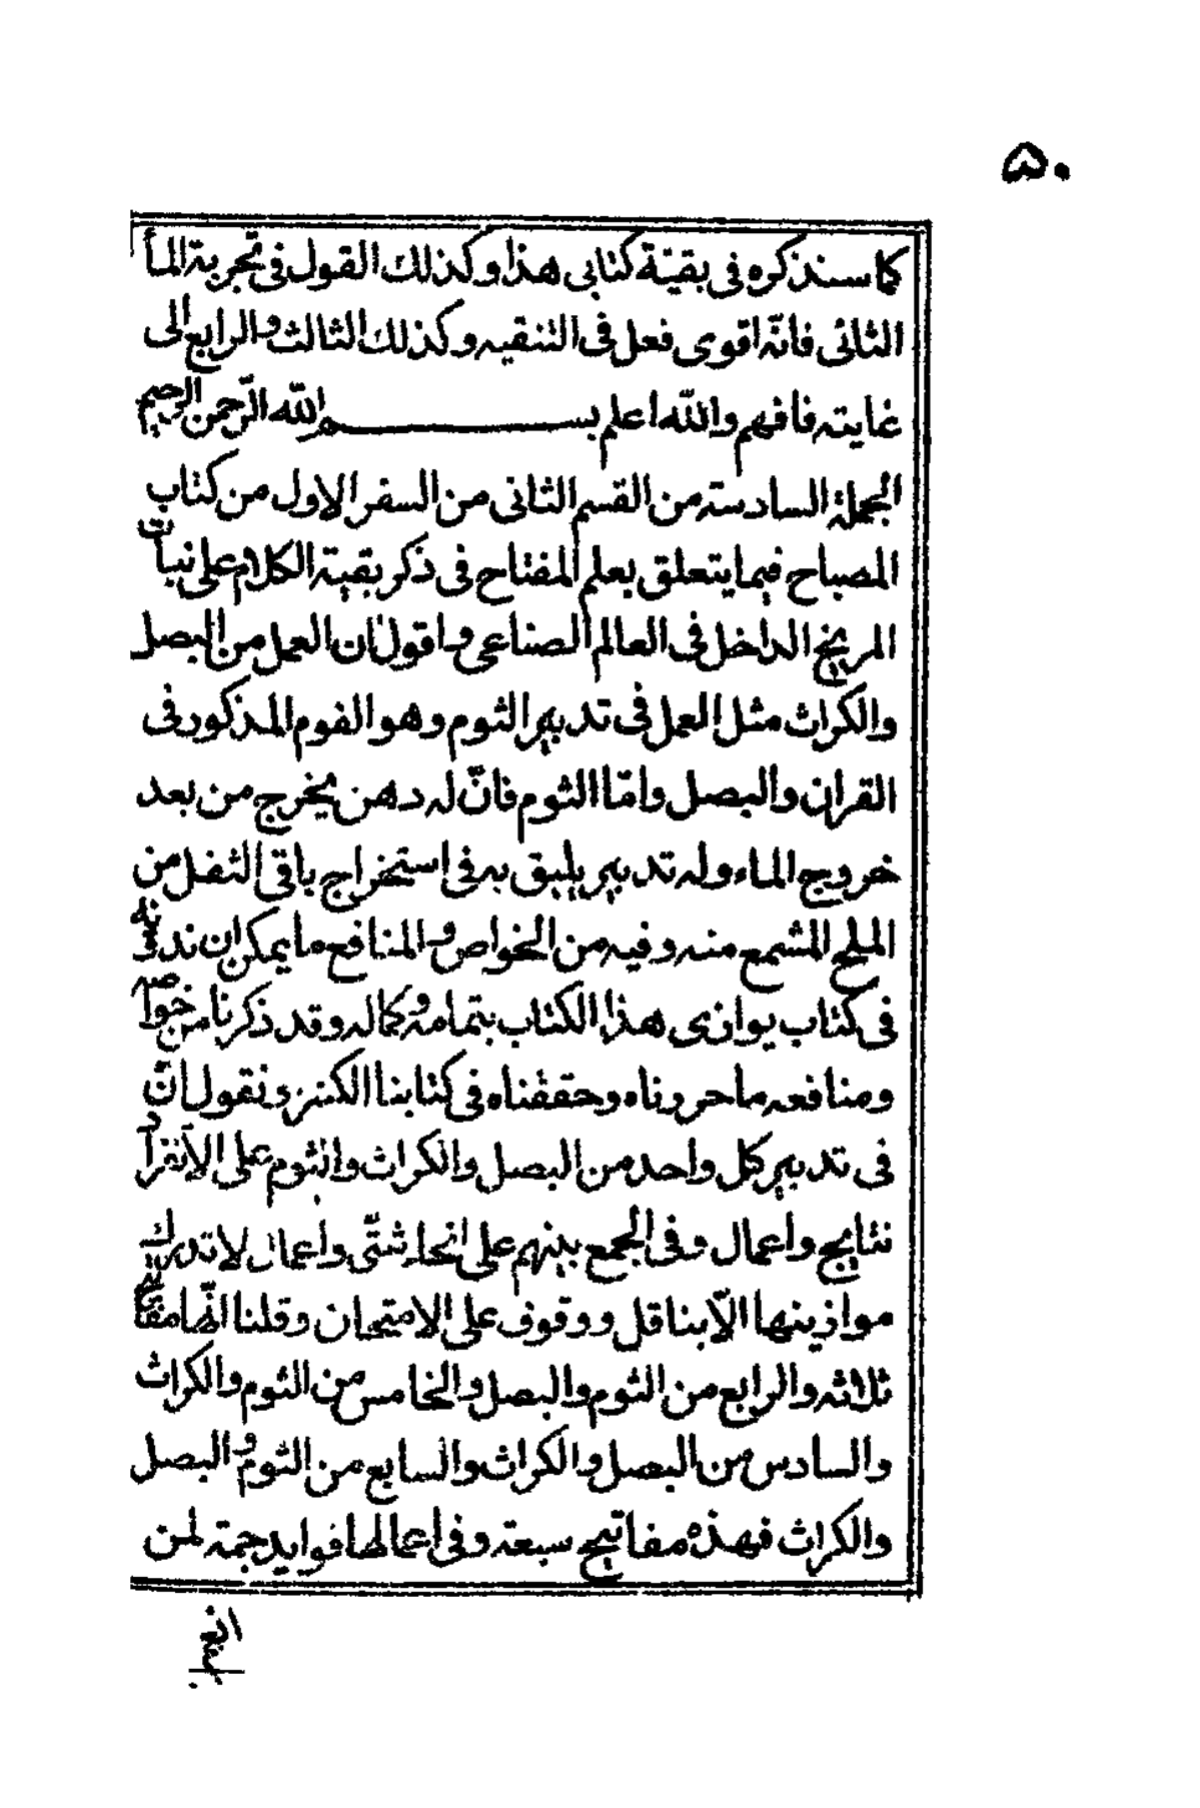 ۵۰
كما سنذكره فى بقيّة كتابى هذا وكذلك القول فى تجربة المأ
الثانى فانّه اقوى فعل فى التنقيه وكذلك الثالث والرابع الى
غايته فافهم والله اعلم بســـــم الله الرّحمن الرحيم
الجملة السادسته من القسم الثانى من السفر الاول من كتاب
المصباح فيما يتعلق بعلم المفتاح فى ذكر بقية الكلام على نباتات
المريخ الداخل فى العالم الصناعى واقول ان العمل من البصل
والكراث مثل العمل فى تدبير الثوم وهو الفوم المذكور فى
القران والبصل وامّا الثوم فانّ له دهن يخرج من بعد
خروج الماء وله تدبير يليق به فى استخراج باقى الثفل من
الملح المشمع منه وفيه من الخواص والمنافع ما يمكن ان ندونه
فى كتاب يوازى هذا الكتاب بتمامه وكماله وقد ذكرنا من خواصه
ومنافعه ما حررناه وحققناه فى كتابنا الكنز ونقول انّ
فى تدبير كل واحد من البصل والكراث والثوم على الانفراد
نتايج واعمال وفى الجمع بينهم على انحاء شتّى واعمال لا تدرك
موازينها الّا بناقل ووقوف على الامتحان وقلنا انّها مفاتيح
ثلاثه والرابع من الثوم والبصل والخامس من الثوم والكراث
والسادس من البصل والكراث والسابع من الثوم والبصل
والكراث فهذه مفاتيح سبعته وفى اعمالها فوايد جمة لمن